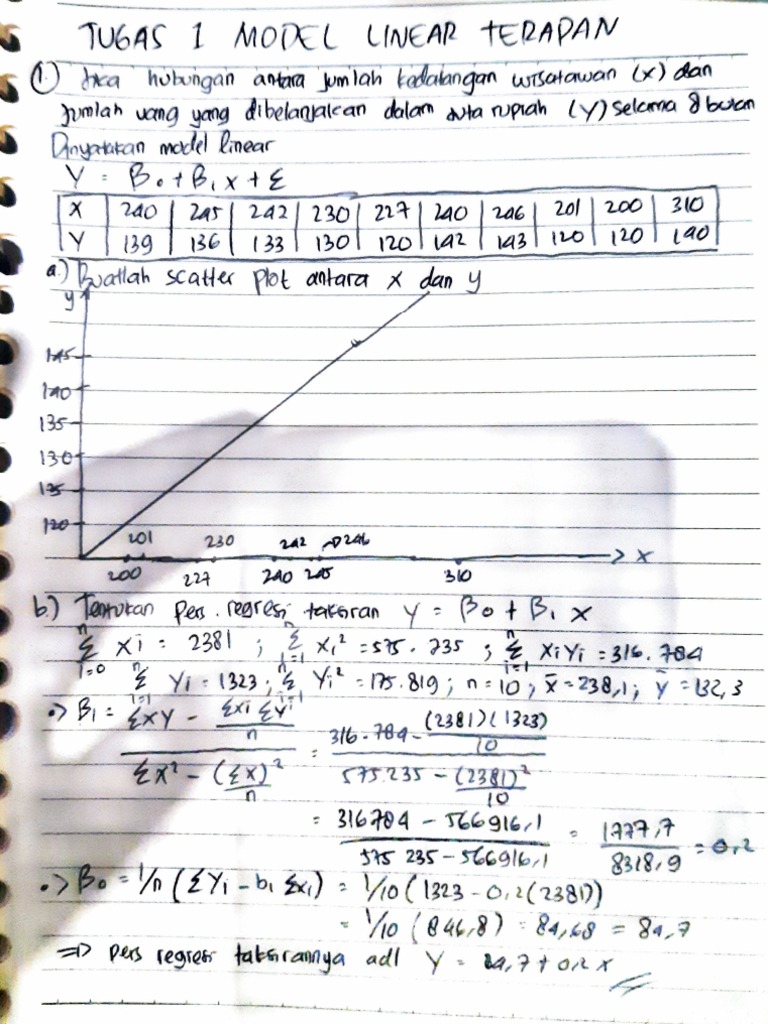 TUGAS 1 MODEL LINEAR TERAPAN
1.) Jika hubungan antara jumlah kedatangan wisatawan (x) dan
jumlah uang yang dibelanjakan dalam juta rupiah (Y) selama 8 bulan
Dinyatakan model linear
Y = β0 + β1 x + ε
X 240 245 242 230 227 240 246 201 200 310
Y 139 136 133 130 120 142 143 120 120 140
a.) Buatlah scatter plot antara x dan y
y
145
140
135
130
125
120
201 230 242 246 x
200 227 240 245 310
b.) Tentukan pers. regresi taksiran Y = β0 + β1 x
n∑i=0 Xi = 2381 ; n∑i=1 Xi² = 575.235 ; n∑i=1 XiYi = 316.784
n∑i=1 Yi = 1323 ; n∑i=1 Yi² = 175.819 ; n = 10 ; x̄ = 238,1 ; ȳ = 132,3
•> β1 = (∑XY - (∑Xi ∑Yi)/n) / (∑X² - (∑X)²/n) = (316.784 - (2381)(1323)/10) / (575.235 - (2381)²/10)
= (316784 - 566916,1) / (575 235 - 566916,1) = 1777,7 / 8318,9 = 0,2
•> β0 = 1/n (∑Yi - b1 ∑xi) = 1/10 (1323 - 0,2(2381))
= 1/10 (846,8) = 84,68 = 84,7
=> pers regresi taksirannya adl Y = 84,7 + 0,2 x